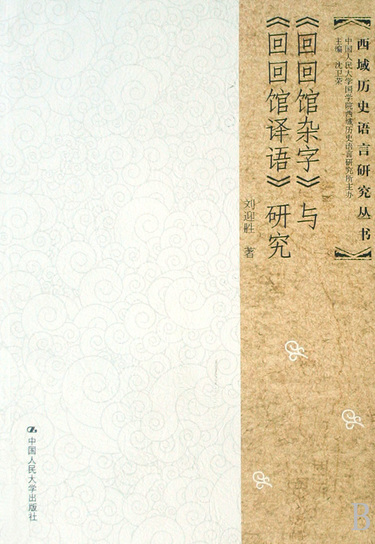 西域历史语言研究丛书
中国人民大学国学院西域历史语言研究所主办
主编 沈卫荣
《回回馆杂字》与
《回回馆译语》研究
刘迎胜 著
中国人民大学出版社
B